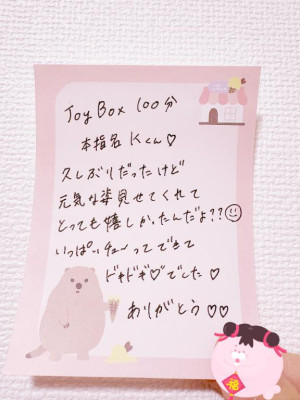 Joy Box 100分
本指名 Kくん♡
久しぶりだったけど
元気な姿見せてくれて
とっても嬉しかったんだよ??☺
いっぱいチューってできて
ドキドキ♡でした♡
ありがとう♡♡
福